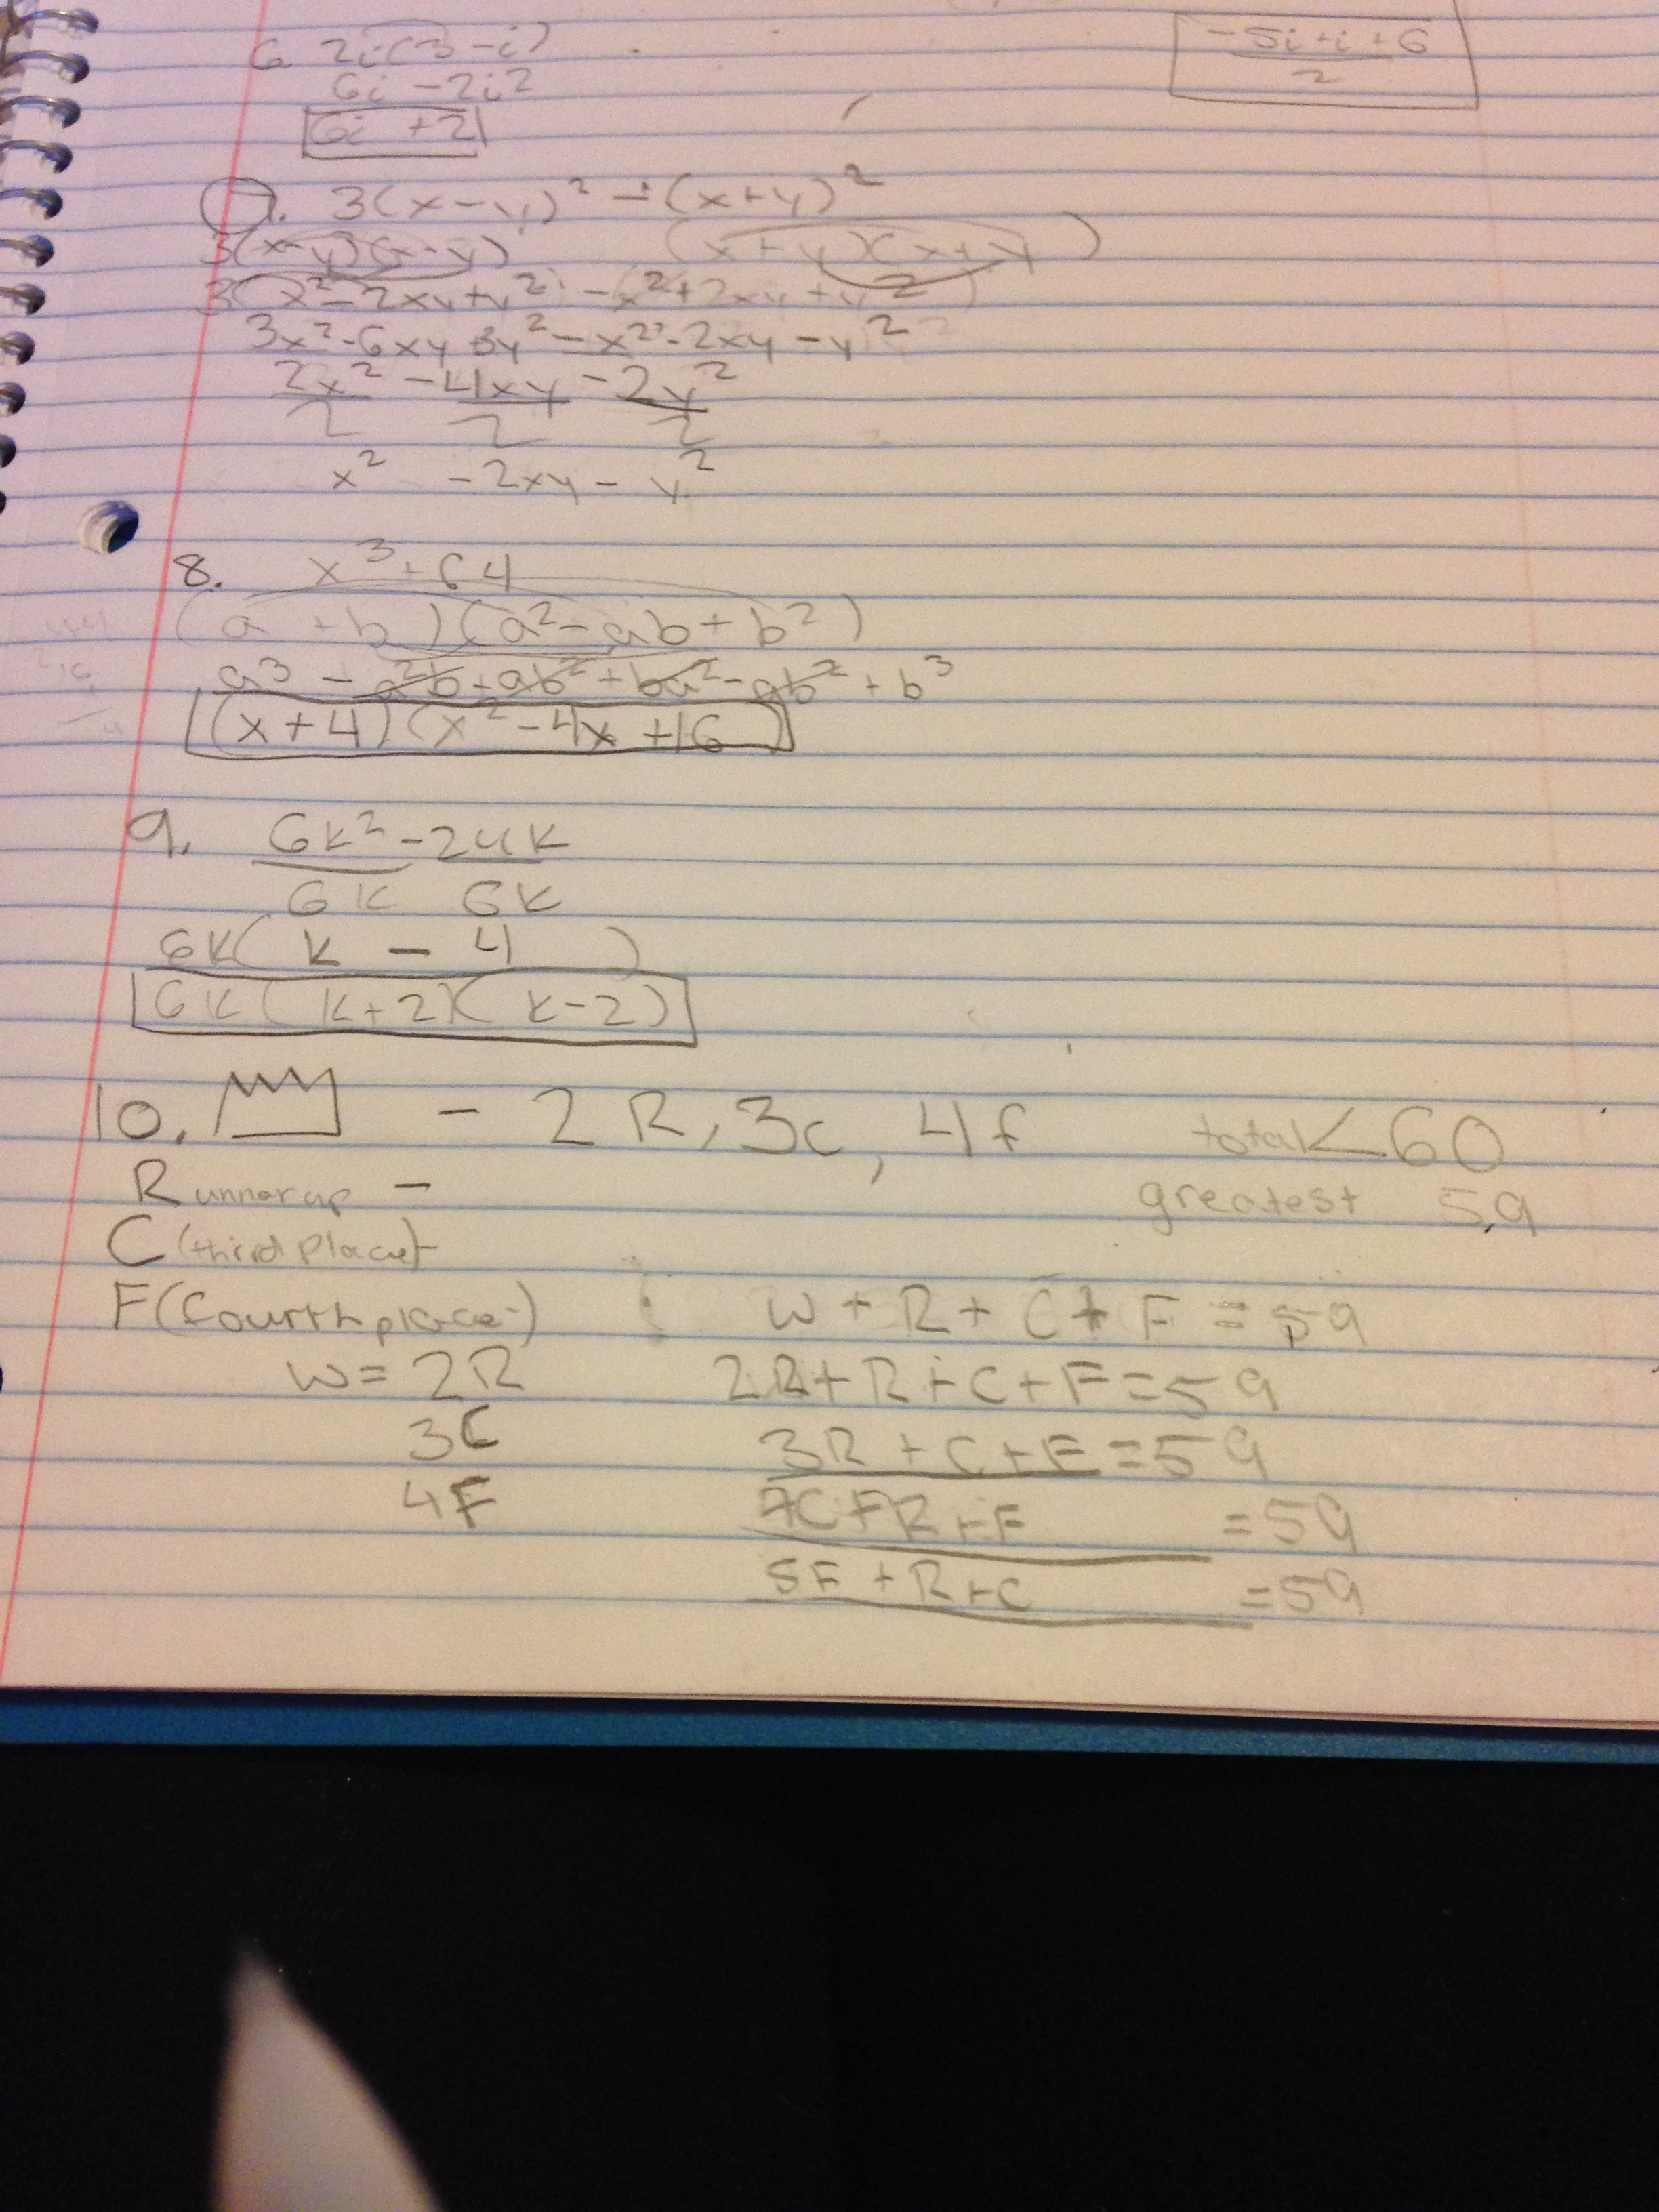 6 2i(3-i)
6i - 2i²
6i +2
-5i+i+6
2
7. 3(x-y)² - (x+y)²
3(x-y)(x-y) (x+y)(x+y)
3(x²-2xy+y²) - (x²+2xy+y²)
3x²-6xy+3y²-x²-2xy-y²
2x² -4xy -2y²
2 2 2
x² -2xy - y²
8. x³+64
(a +b)(a²-ab+b²)
a³ - a²b+ab²+ba²-ab²+b³
(x+4)(x²-4x+16)
9. 6k²-24k
6k 6k
6k( k - 4 )
6k( k+2)( k-2)
10. - 2R, 3c, 4f total<60
Runnerup - greatest 59
C (third place)-
F(fourth place-) W + R + C + F = 59
W= 2R 2R+R+C+F=59
3C 3R + C+F=59
4F C+R+F =59
5F +R+C =59